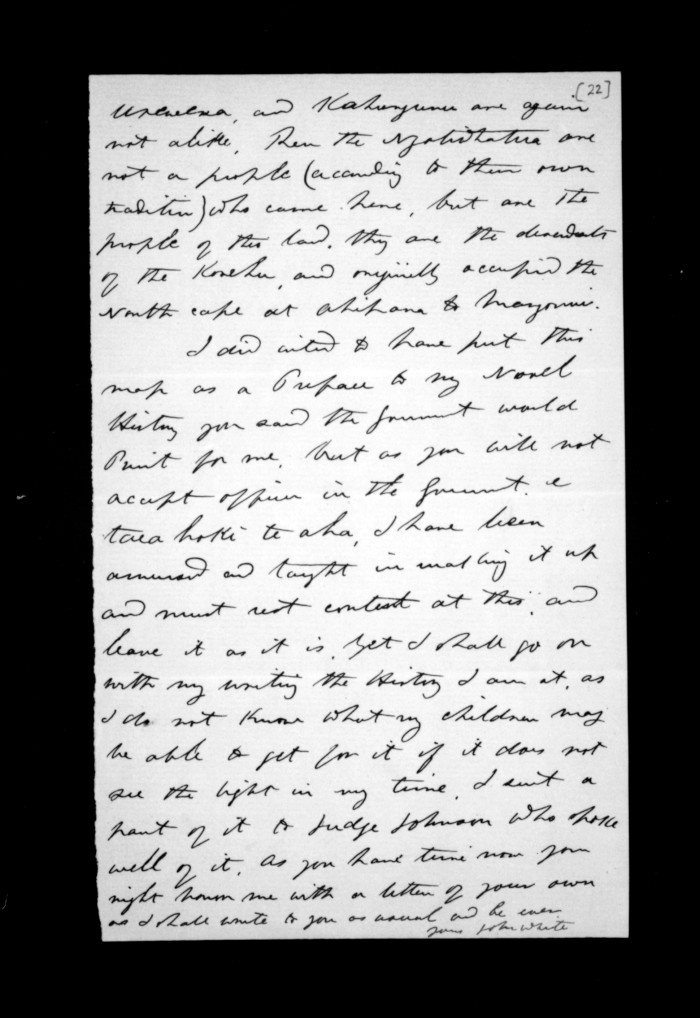 [22]
Urewera, and Kahungunu are again
not alike, Then the Ngatiwhatua are
not a people (according to their own
tradition) who came here, but are the
people of this land. they are the descendants
of the Korehu, and originally occupied the
North cape at Ahipara to Mangonui.
I did intend to have put this
map as a Preface to my Novel
History you said the Government would
Print for me. but as you will not
accept office in the Government. e
taea hoki te aha, I have been
amused and taught in making it up
and must rest content at this, and
leave it as it is, yet I shall go on
with my writing the History I am at, as
I do not know what my children may
be able to get for it if it does not
see the light in my time, I sent a
part of it to Judge Johnson who spoke
well of it, as you have time now you
might honor me with a letter of your own
as I shall write to you as usual and be ever
yours John White